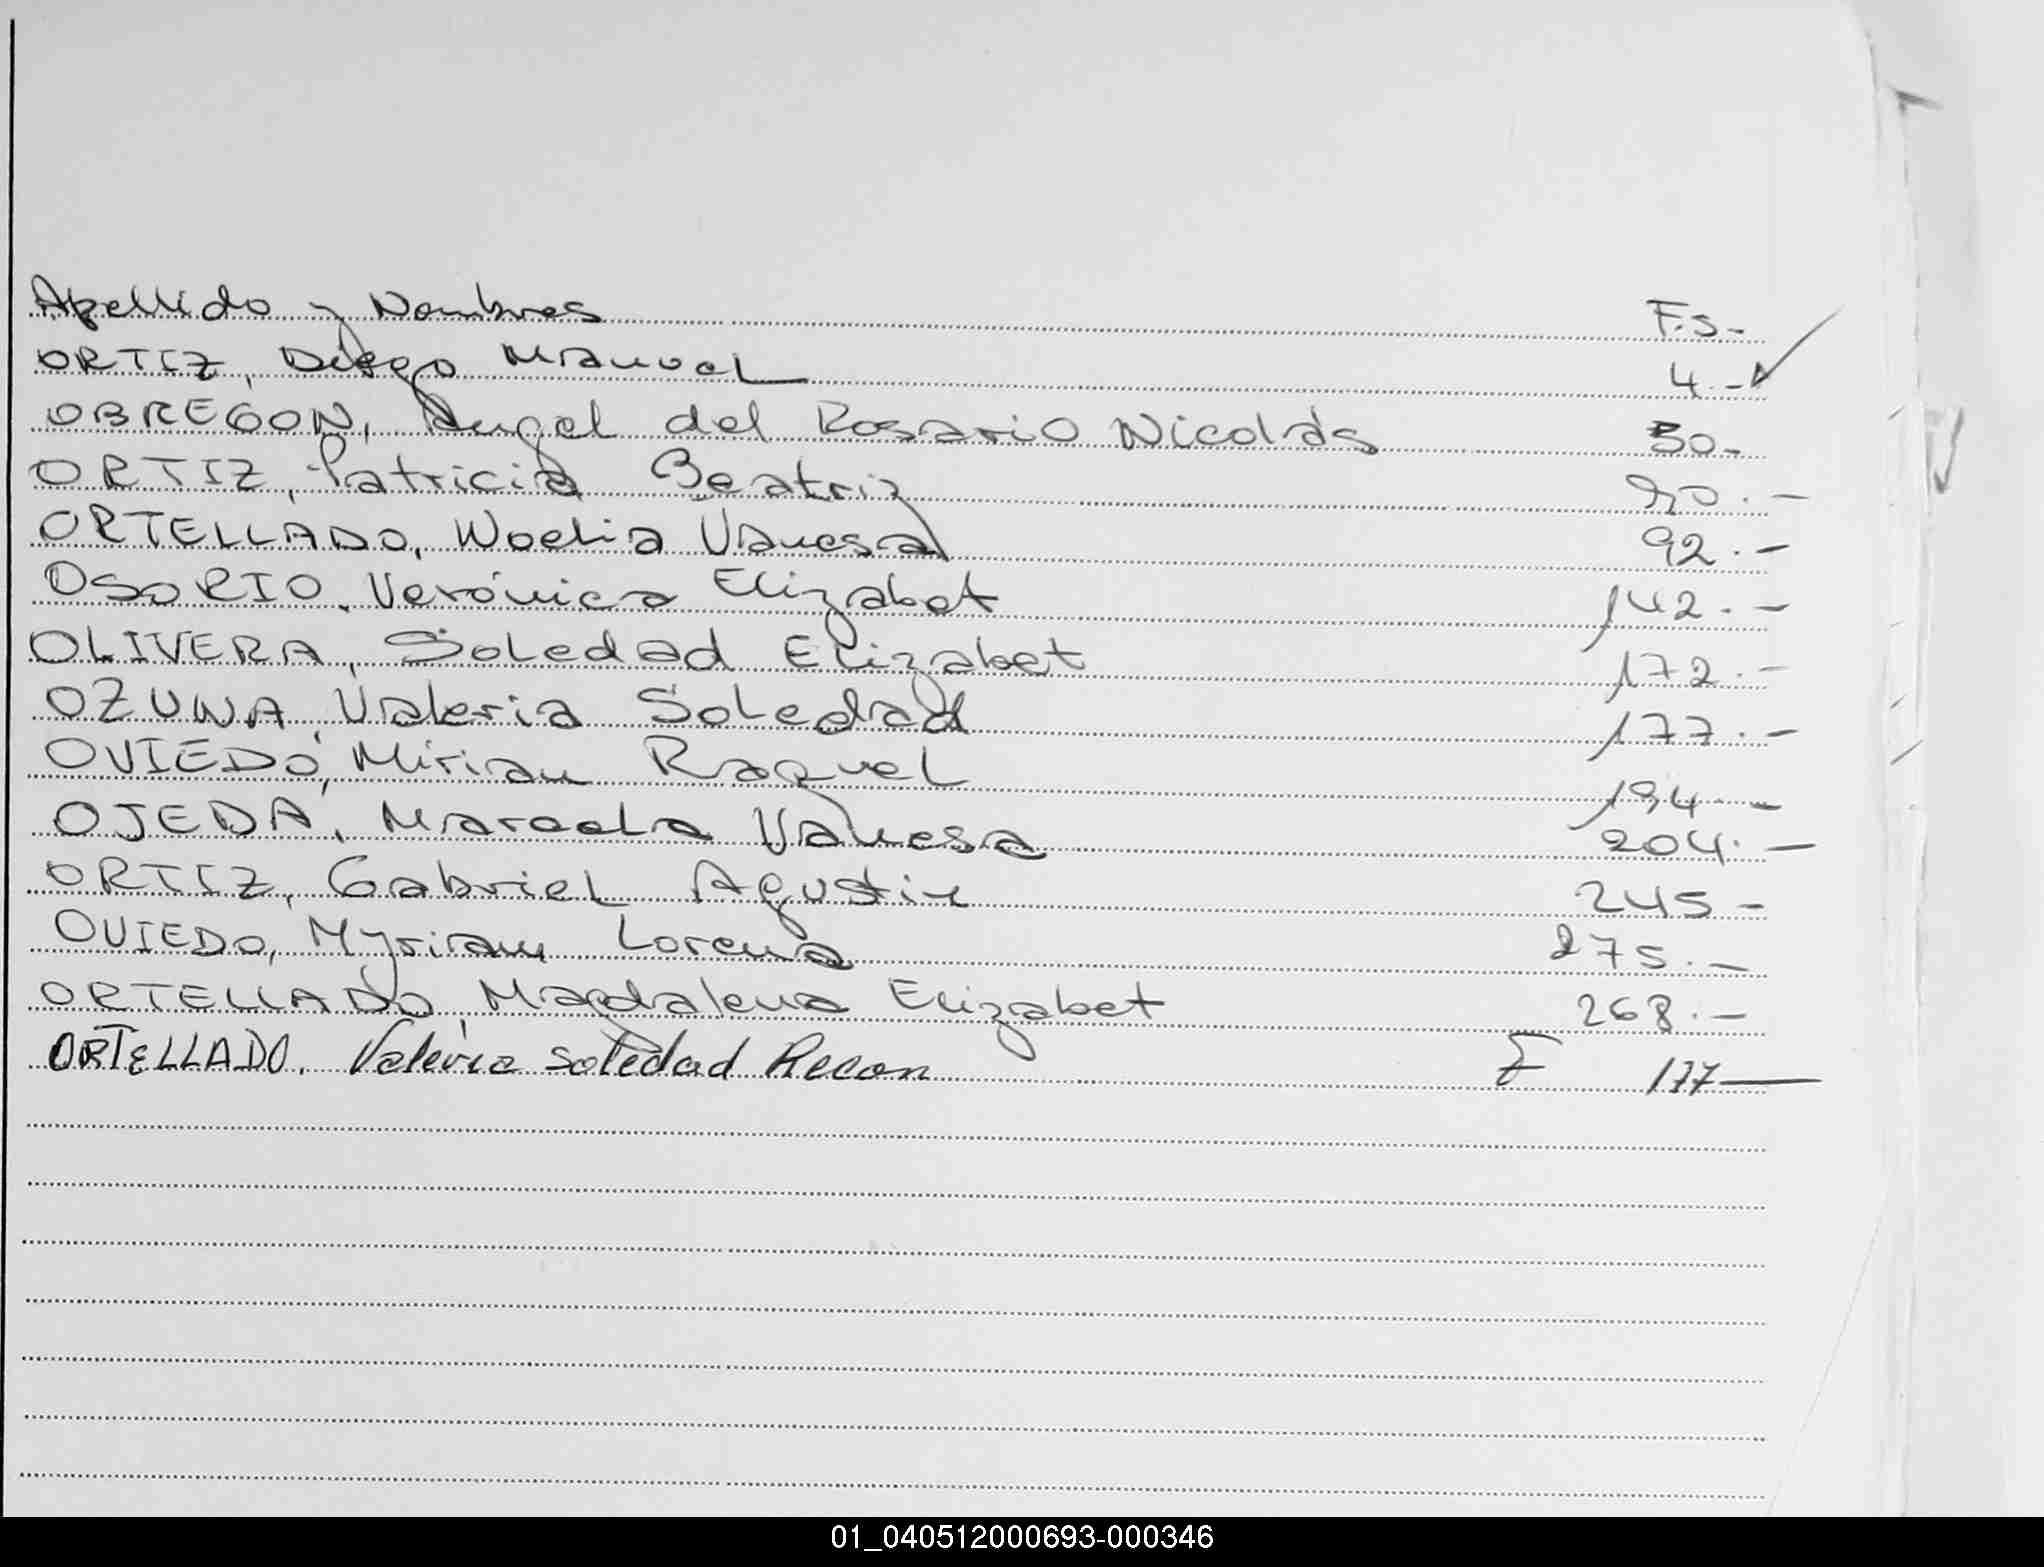 Apellido y Nombres F.S.-
ORTIZ, Diego Manuel 4.-
OBREGON, Angel del Rosario Nicolás 50-
ORTIZ, Patricia Beatriz 90.-
ORTELLADO, Noelia Vanesa 92.-
OSORIO, Verónica Elizabet 142.-
OLIVERA, Soledad Elizabet 172.-
OZUNA, Valeria Soledad 177.-
OVIEDO, Mirian Raquel 194.-
OJEDA, Marcela Vanesa 204.-
ORTIZ, Gabriel Agustin 245-
OVIEDO, Myriam Lorena 275.-
ORTELLADO, Magdalena Elizabet 268.-
ORTELLADO. Valeria Soledad Recon 177-
01_040512000693-000346